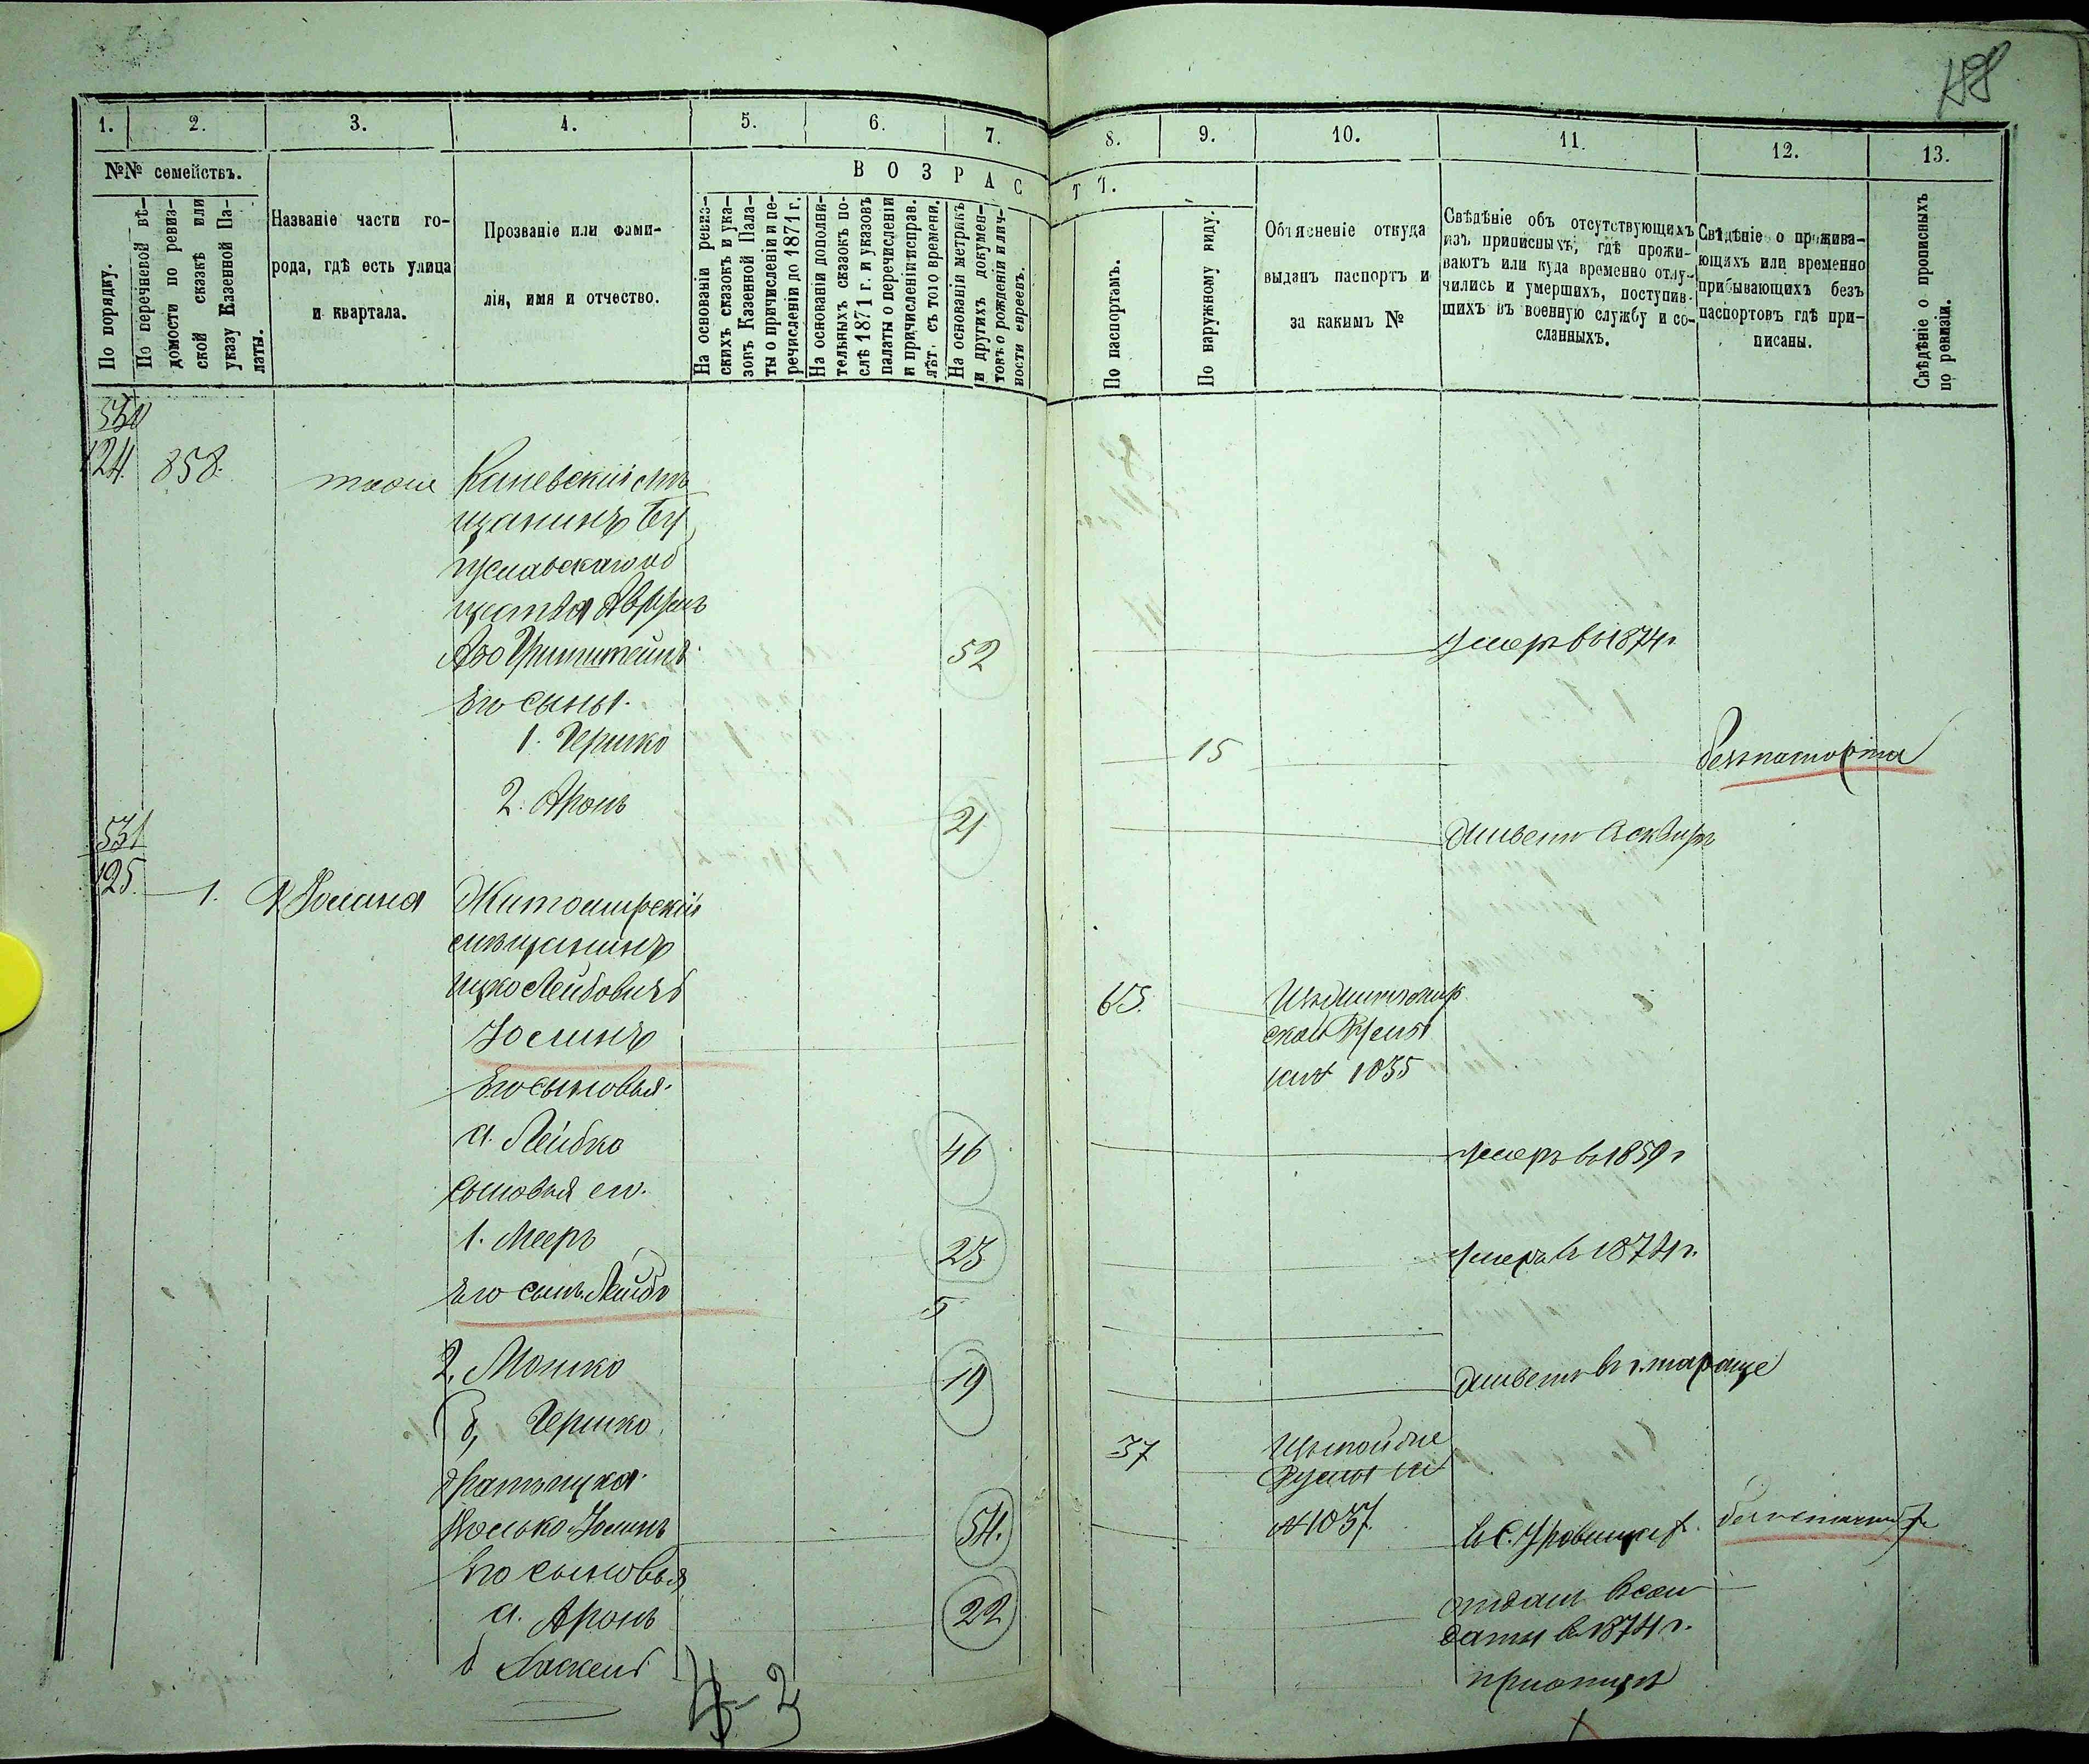 198
1. 2. 3. 4. 5. 6. 7. 8. 9. 10. 11. 12. 13.
№№ семействъ.
По порядку.
По перечневой вѣ-
домости по ревиз-
ской сказкѣ или
указу Казенной Па-
латы.
Названіе части го-
рода, гдѣ есть улица
и квартала.
Прозваніе или фами-
лія, имя и отчество.
ВОЗРАСТЪ.
На основаніи ревиз-
скихъ сказокъ и ука-
зовъ Казенной Пала-
ты о причисленіи и пе-
речисленіи до 1871 г.
На основаніи дополни-
тельныхъ сказокъ по-
слѣ 1871 г. и указовъ
палаты о перечисленіи
и причисленіи исправ.
лѣт. съ того времени.
На основаніи метрикъ
и другихъ докумен-
товъ о рожденіи и лич-
ности евреевъ.
По паспортамъ.
По наружному виду.
Объясненіе откуда
выданъ паспортъ и
за какимъ №
Свѣдѣніе объ отсутствующихъ
изъ приписныхъ, гдѣ прожи-
ваютъ или куда временно отлу-
чились и умершихъ, поступив-
шихъ въ военную службу и со-
сланныхъ.
Свѣдѣніе о прожива-
ющихъ или временно
прибывающихъ безъ
паспортовъ гдѣ при-
писаны.
Свѣдѣніе о прописныхъ
по ревизіи.
530
124. 858. тоже Каневскій мѣ
щанинъ Бу
гуславскаго об
щества Аврумъ
Азо Гринштейнъ 52 умеръ въ 1874 г.
Его сыны.
1. Гершко 15 безпаспорта
2. Аронъ 21 живетъ в Сквирѣ
531
125. 1. Житомирскій
мѣщанинъ
Ицко Лейбовичъ 65. Изъ Житомир
Юсимъ ской Думы
за № 1035
Его сыновья.
а. Лейбко 46 умеръ въ 1859 г
сыновья его.
1. Мееръ 23 умеръ в 1874 г.
Его сынъ Лейба 5
2. Мошко 19 живетъ въ г. Тараще
б, Гершко 37 Изъ той же
Думы за
братъ Ицка № 1037
Іосько Юсимъ 54.
Его сыновья
а. Аронъ 22 отданъ в сол
даты в 1874 г.
б при отцѣ
4-2